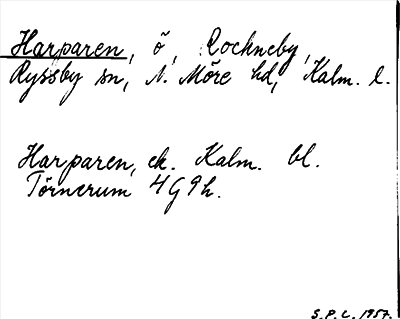 Harparen, ö, Rockneby,
Ryssby sn, N. Möre hd, Kalm. l.
Harparen, ek. Kalm. bl.
Törnerum 4G9h.
S.P.L. 1957.